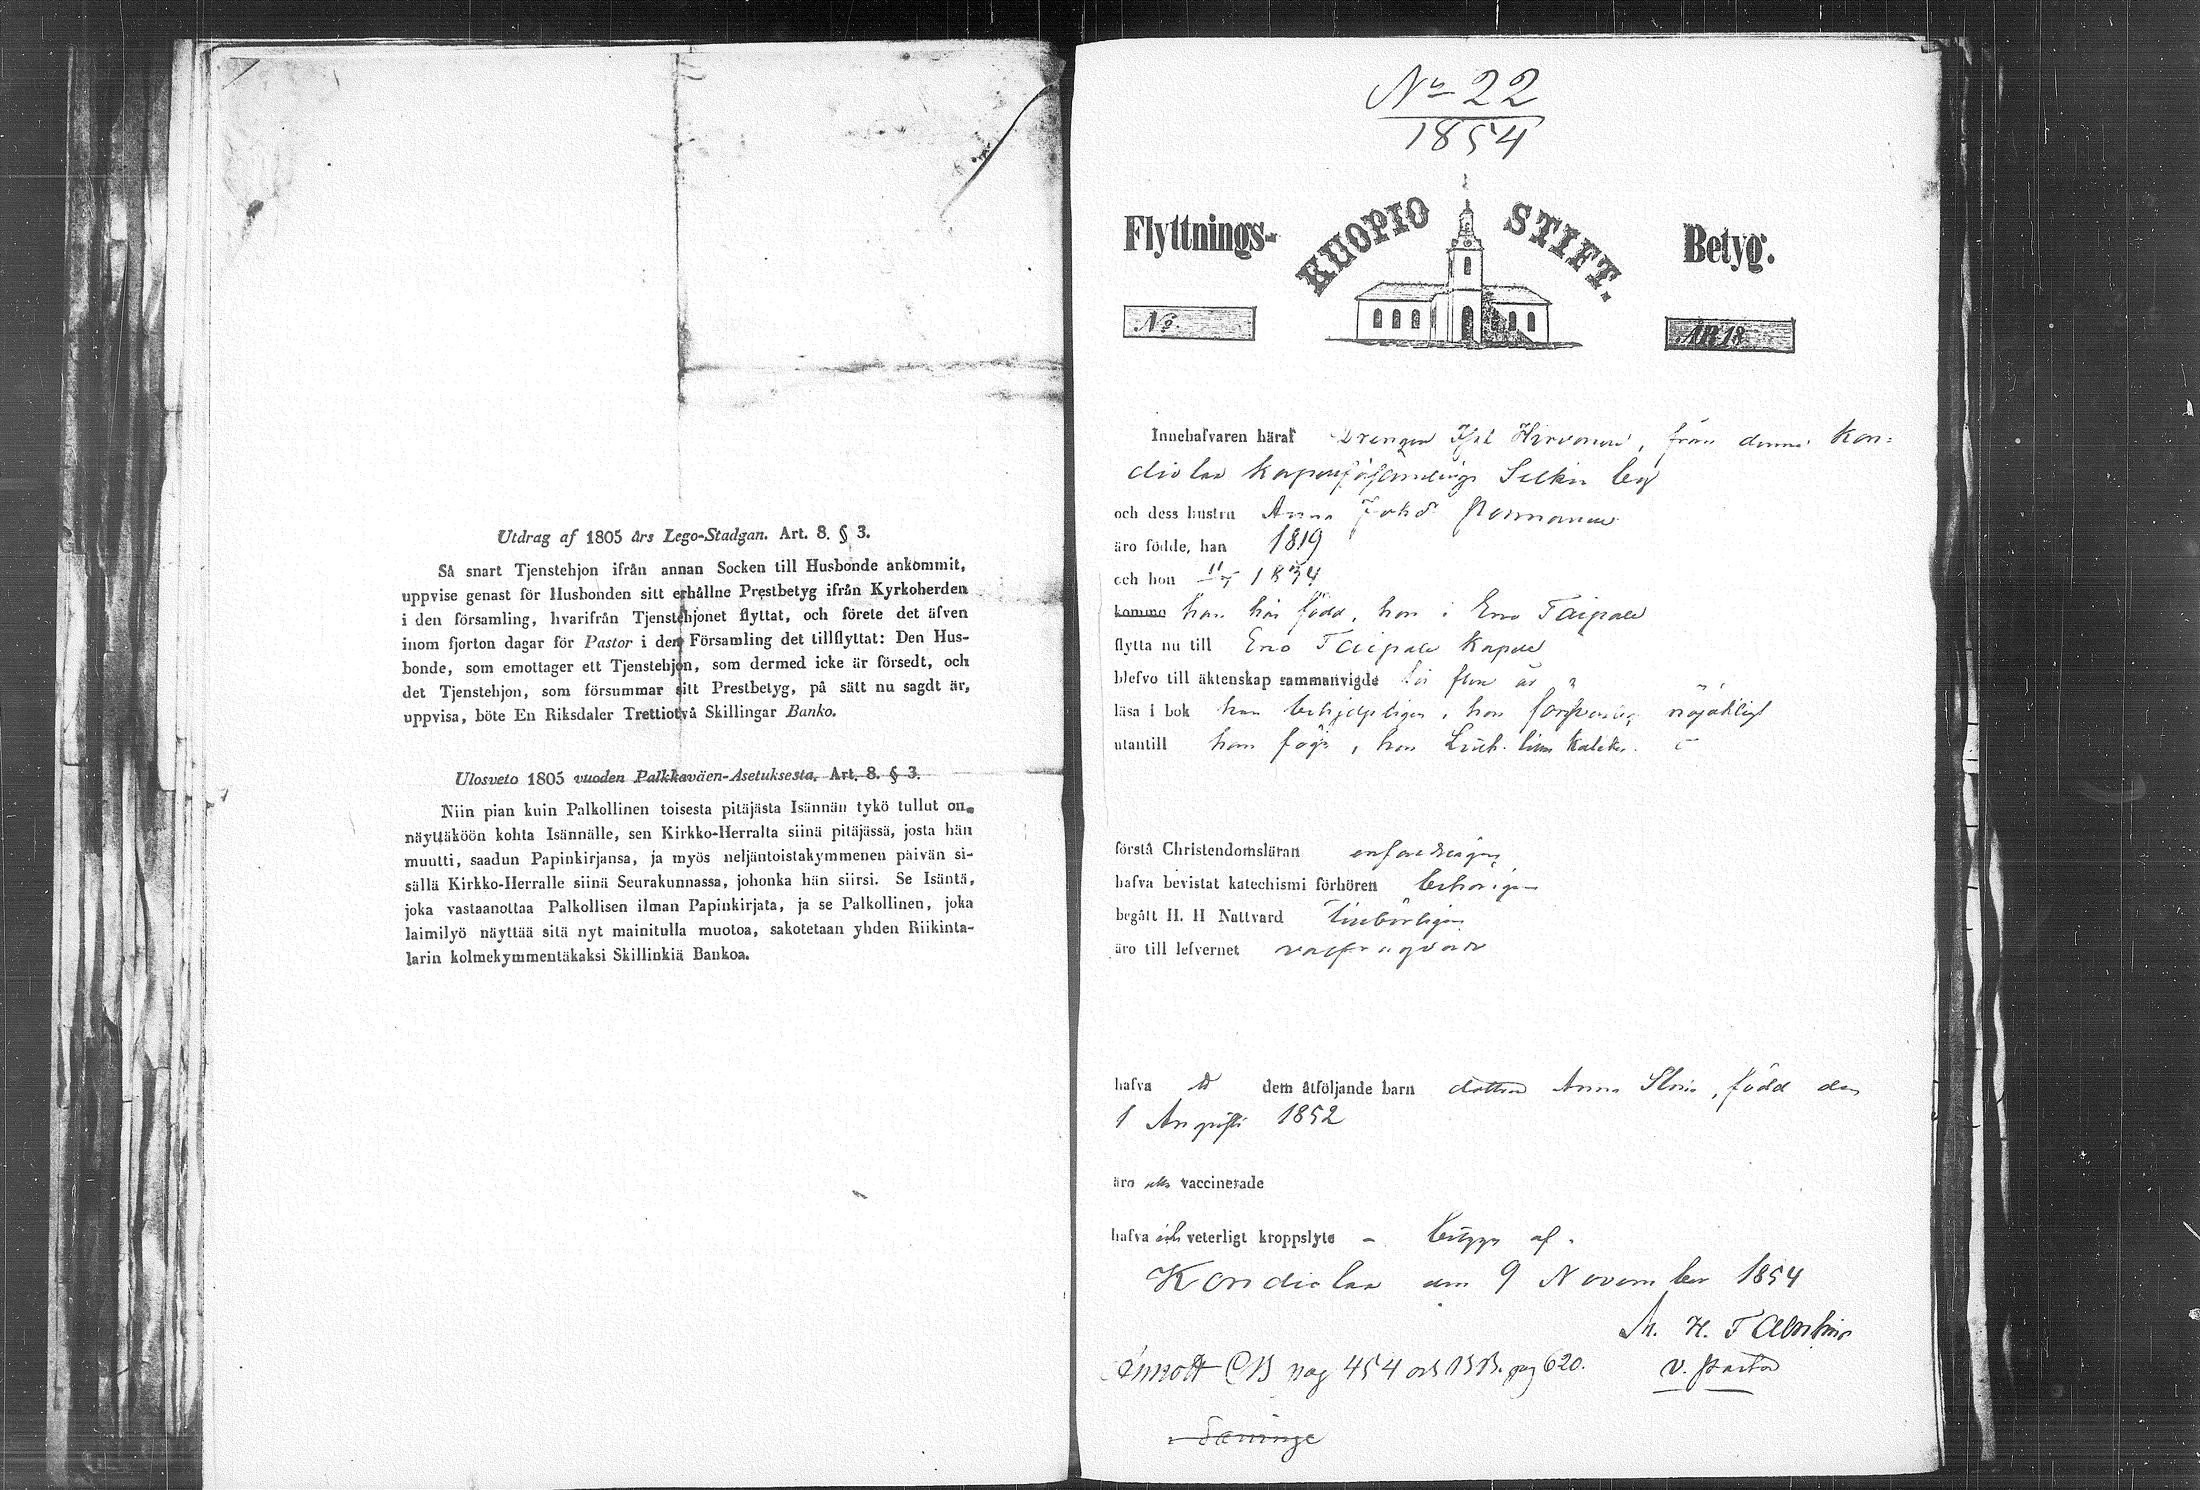 Utdrag af 1805 års Lego-Stadgan. Art. 8. § 3.
Så snart Tjenstehjon ifrån annan Socken till Husbonde ankommit,
uppvise genast för Husbonden sitt erhållne Prestbetyg ifrån Kyrkoherden
i den församling, hvarifrån Tjenstehjonet flyttat, och förete det äfven
inom fjorton dagar för Pastor i den Församling det tillflyttat: Den Hus-
bonde, som emottager ett Tjenstehjon, som dermed icke är försedt, och
det Tjenstehjon, som försummar sitt Prestbetyg, på sätt nu sagdt är,
uppvisa, böte En Riksdaler Trettiotvå Skillingar Banko.
Ulosveto 1805 vuoden Palkkaväen-Asetuksesta. Art. 8. § 3.
Niin pian kuin Palkollinen toisesta pitäjästa Isännän tykö tullut on,
näyttäköön kohta Isännälle, sen Kirkko-Herralta siinä pitäjässä, josta hän
muutti, saadun Papinkirjansa, ja myös neljäntoistakymmenen päivän si-
sällä Kirkko-Herralle siinä Seurakunnassa, johonka hän siirsi. Se Isäntä,
joka vastaanottaa Palkollisen ilman Papinkirjata, ja se Palkollinen, joka
laimilyö näyttää sitä nyt mainitulla muotoa, sakotetaan yhden Riikinta-
larin kolmekymmentäkaksi Skillinkiä Bankoa.
No 22
1854
Flyttnings- KUOPIO STIFT. Betyg.
No.
ÅR 18
Innehafvaren häraf Drengen Hirvonen, från denna Kon-
diolax Selkie by
och dess hustru Anna Johsdr
äro födde, han 1819
och hon 1834
komma han här född, hon i Eno Taipale
flytta nu till Eno Taipale Kapell
blefvo till äktenskap sammanvigde
läsa i bok han hon nöjaktligt
utantill han , hon Luth.
förstå Christendomsläran
hafva bevistat katechismi förhören behörigen
begått H. H Nattvard tillbörligen
äro till lefvernet
hafva dem åtföljande barn dottren Anna , född den
1 Augusti 1852
äro alla vaccinerade
hafva veterligt kroppslyte – betygar af.
Kondiolax den 9 November 1854
H.
Annott CB pag 454 och pag 620. V. Pastor